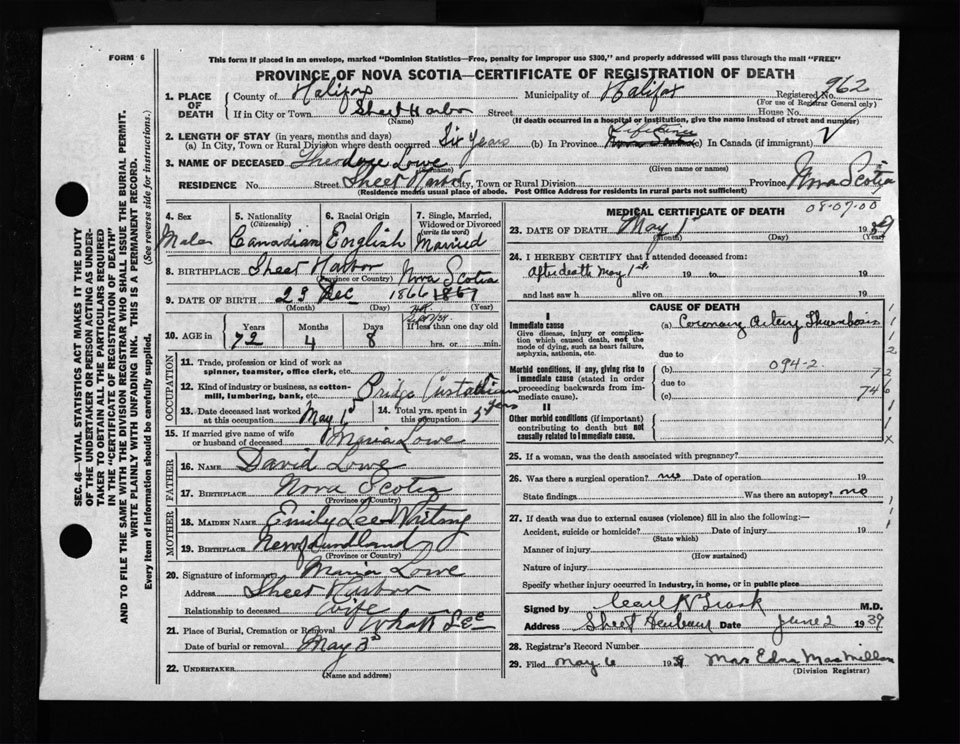 FORM 6
This form if placed in an envelope, marked "Dominion Statistics—Free, penalty for improper use $300," and properly addressed will pass through the mail "FREE"
PROVINCE OF NOVA SCOTIA—CERTIFICATE OF REGISTRATION OF DEATH
962
1. PLACE OF DEATH { County of Halifax Municipality of Halifax Registered No.
(For use of Registrar General only)
If in City or Town Sheet Harbor Street House No.
(Name) (If death occurred in a hospital or institution, give the name instead of street and number)
2. LENGTH OF STAY (in years, months and days)
Lifetime
(a) In City, Town or Rural Division where death occurred Six Years (b) In Province Nova Scotia (c) In Canada (if immigrant)
3. NAME OF DECEASED Theodore Lowe
(Given name or names)
RESIDENCE No. Street Sheet Harbor City, Town or Rural Division Province Nova Scotia
(Residence means usual place of abode. Post Office Address for residents in rural parts not sufficient)
4. Sex Male
5. Nationality (Citizenship) Canadian
6. Racial Origin English
7. Single, Married, Widowed or Divorced (write the word) Married
8. BIRTHPLACE Sheet Harbor Nova Scotia
(Province or Country)
9. DATE OF BIRTH 23 Dec 1866 1867
(Month) (Day) (Year)
10. AGE in { Years 72 Months 4 Days 8 If less than one day old hrs. or min.
OCCUPATION
11. Trade, profession or kind of work as spinner, teamster, office clerk, etc.
12. Kind of industry or business, as cotton-mill, lumbering, bank, etc. Bridge Custodian
13. Date deceased last worked at this occupation May 1st
14. Total yrs. spent in this occupation 5 yrs
15. If married give name of wife or husband of deceased Maria Lowe
FATHER
16. NAME David Lowe
17. BIRTHPLACE Nova Scotia
(Province or Country)
MOTHER
18. MAIDEN NAME Emily Lee
19. BIRTHPLACE Newfundland
(Province or Country)
20. Signature of informant Maria Lowe
Address Sheet Harbor
Relationship to deceased wife
21. Place of Burial, Cremation or Removal
Date of burial or removal May 3rd
22. UNDERTAKER
(Name and address)
MEDICAL CERTIFICATE OF DEATH
08-07.00
23. DATE OF DEATH May 1st 1939
(Month) (Day) (Year)
24. I HEREBY CERTIFY that I attended deceased from:
After death May 1st 19 to 19
and last saw h alive on 19
CAUSE OF DEATH
I
Immediate cause
Give disease, injury or complication which caused death, not the mode of dying, such as heart failure, asphyxia, asthenia, etc.
(a) Coronary Artery Thrombosis
due to
Morbid conditions, if any, giving rise to immediate cause (stated in order proceeding backwards from immediate cause).
(b) 094-2.
due to
(c)
72
746
II
Other morbid conditions (if important) contributing to death but not causally related to immediate cause.
25. If a woman, was the death associated with pregnancy?
26. Was there a surgical operation? no Date of operation 19
State findings Was there an autopsy? no
27. If death was due to external causes (violence) fill in also the following:—
Accident, suicide or homicide? Date of injury 19
(State which)
Manner of injury
(How sustained)
Nature of injury
Specify whether injury occurred in industry, in home, or in public place
Signed by M.D.
Address Sheet Harbour Date June 2 1939
28. Registrar's Record Number
29. Filed May 6 1939 Mrs Edna MacMillan
(Division Registrar)
SEC. 46—VITAL STATISTICS ACT MAKES IT THE DUTY
OF THE UNDERTAKER OR PERSON ACTING AS UNDER-
TAKER TO OBTAIN ALL THE PARTICULARS REQUIRED
IN THE "CERTIFICATE OF REGISTRATION OF DEATH"
AND TO FILE THE SAME WITH THE DIVISION REGISTRAR WHO SHALL ISSUE THE BURIAL PERMIT.
WRITE PLAINLY WITH UNFADING INK. THIS IS A PERMANENT RECORD.
Every item of information should be carefully supplied. (See reverse side for instructions.)